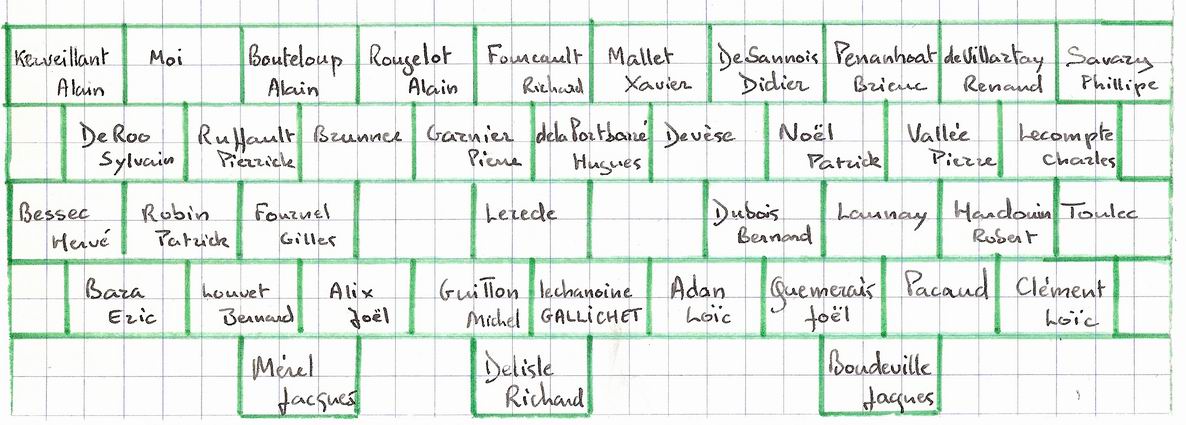 Kerveillant Moi Bouteloup Rougelot Foureault Mallet DeSannois Penanhoat deVillartay Savary
Alain Alain Alain Richard Xavier Didier Brieuc Renaud Phillipe
DeRoo Ruffault Brunner Garnier delaPortbarré Devèse Noël Vallée Lecompte
Sylvain Pierrick Pierre Hugues Patrick Pierre Charles
Bessec Robin Fournel Lerede Dubois Launay Hardouin Toulec
Hervé Patrick Gilles Bernard Robert
Bara Louvet Alix Guitton lechanoine Adan Quemerais Pacaud Clément
Eric Bernard Joël Michel GALLICHET Loïc Joël Loïc
Mérel Delisle Boudeville
Jacques Richard Jaques